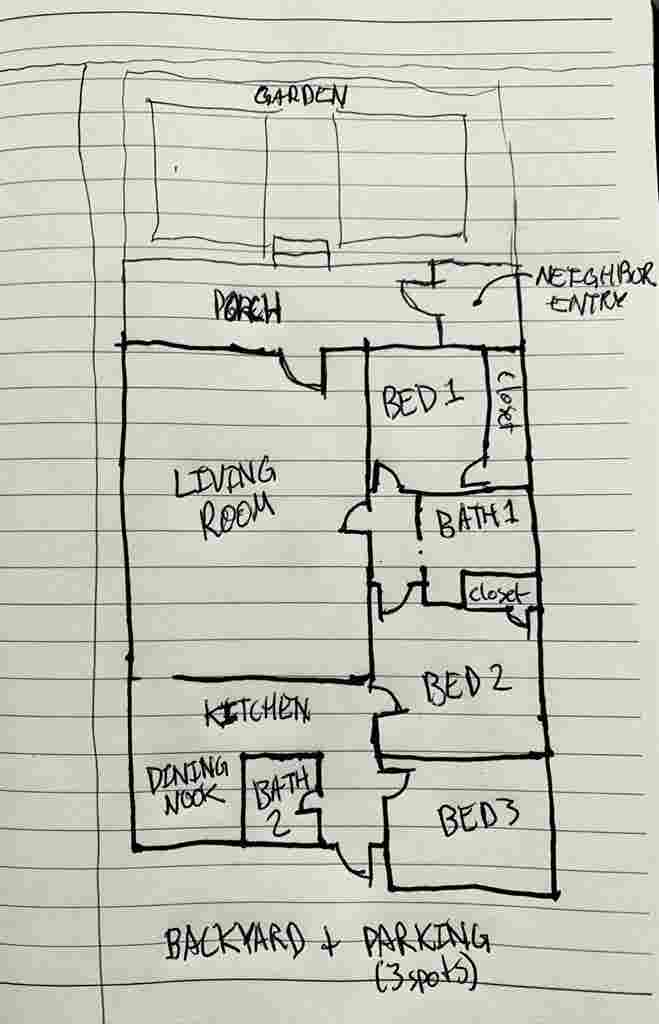 GARDEN
NEIGHBOR
ENTRY
PORCH
BED 1
closet
LIVING
ROOM
BATH 1
closet
BED 2
KITCHEN
DINING
NOOK
BATH
2
BED 3
BACKYARD + PARKING
(3 spots)